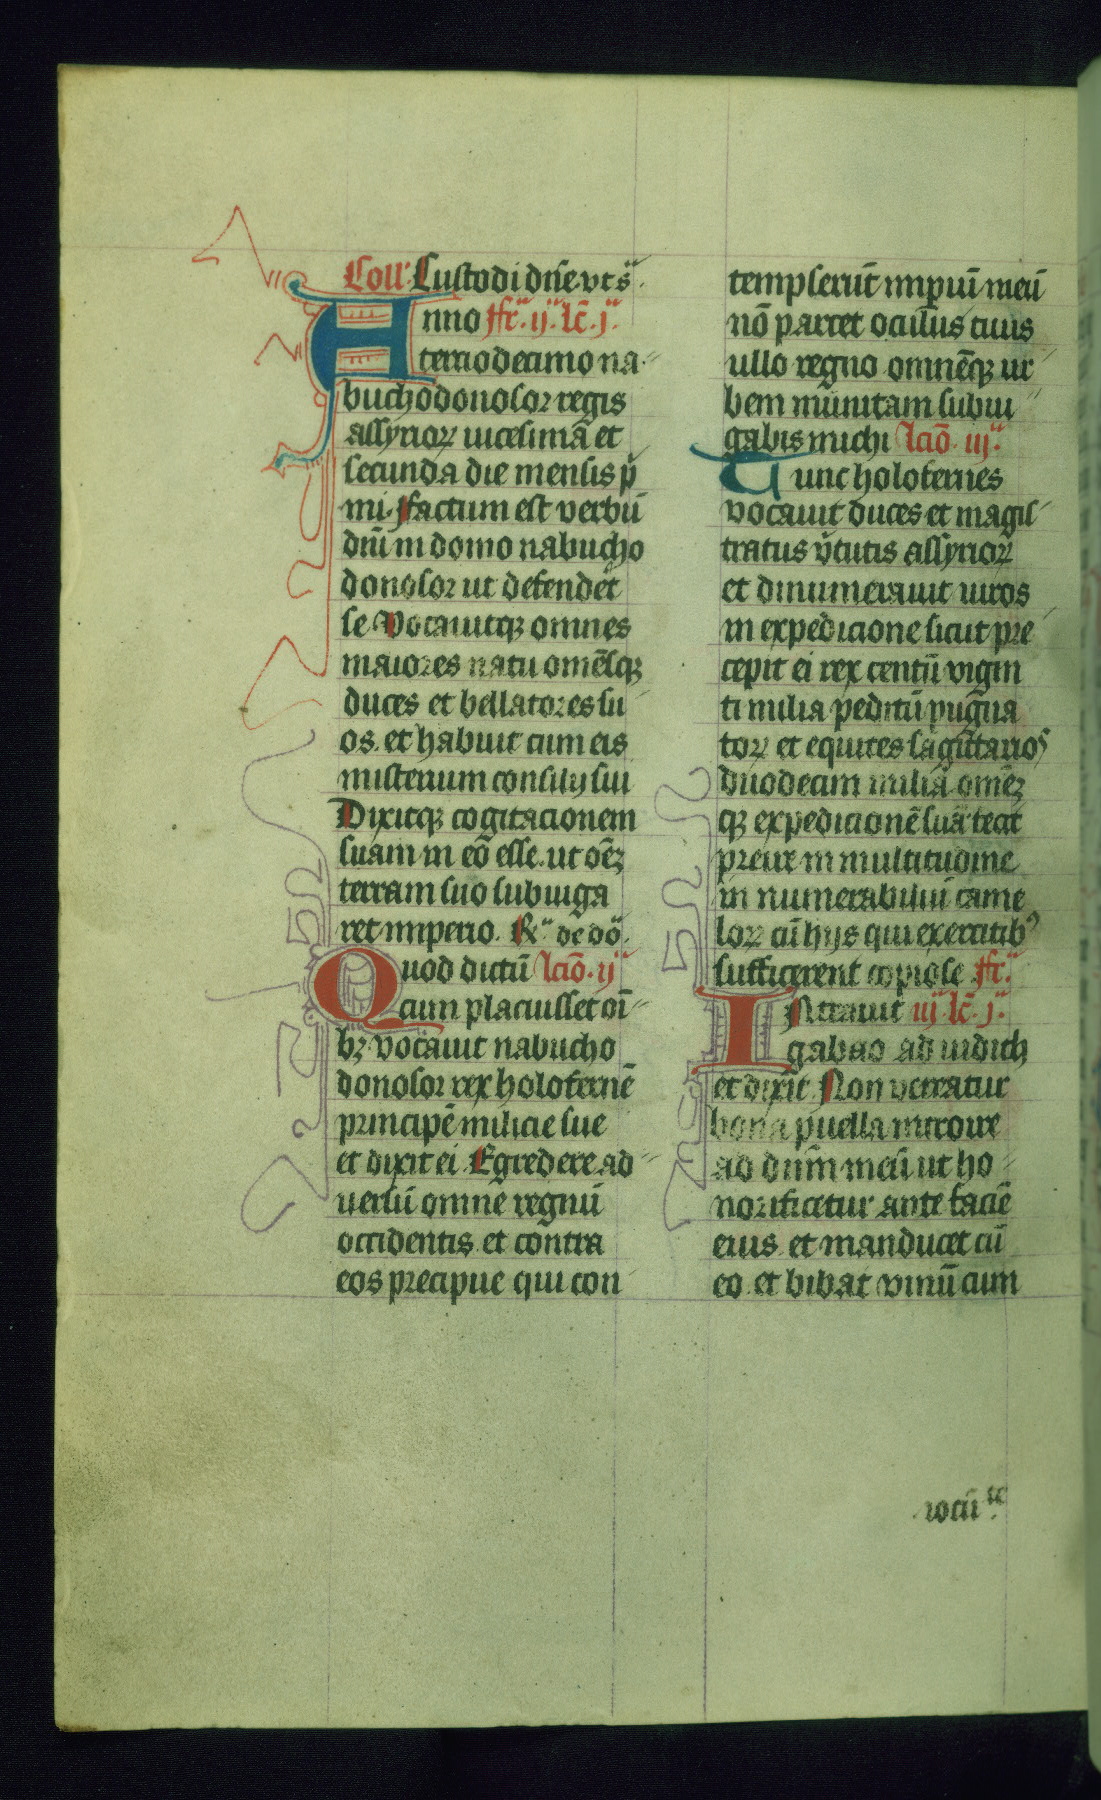 Coll' Custodi dn̄e vt sͣ.
Anno ffr̄. ij. lc̄. j.
terciodecimo na-
buchodonosor regis
assyrioꝝ uicesimā et
secunda die mensis p̄
mi. factum est verbū
dn̄i in domo nabucho
donosor ut defendēt
se Vocauitqꝫ omnes
maiores natu omēsqꝫ
duces et bellatores su
os. et habuit cum eis
misterium consilij sui
Dixitqꝫ cogitacionem
suam in eo esse. ut oēꝫ
terram suo subiuga
ret imperio. R̄ de dō.
Quod dictū lcō. ij
cum placuisset oī-
bꝫ. vocauit nabucho
donosor rex holofernē
principē milicie sue
et dixit ei. Egredere ad-
uersū omne regnū
occidentis. et contra
eos precipue qui con
tempserūt impiū meū
nō parcet oculus tuus
ullo regno omnēqꝫ ur-
bem munitam subiu
gabis michi lcō. iij.
Tunc holofernes
vocauit duces et magis-
tratus v̄tutis assyrioꝝ
et dinumerauit uiros
in expedicione sicut pre-
cepit ei rex centū vigin
ti milia peditū pugna
toꝝ et equites sagittarios
duodecim milia. omēꝫ
qꝫ expedicionē suā fecit
preire in multitudine
in numerabiliū came
loꝝ cū hijs qui exercitibꝰ
sufficerent copiose ffr̄.
INtrauit iij. lc̄. j.
gabao ad iudith
et dixit. Non vereatur
bona puella introire
ad dn̄m meū ut ho-
norificetur ante faciē
eius. et manducet cū
eo. et bibat vinū cum
iocū